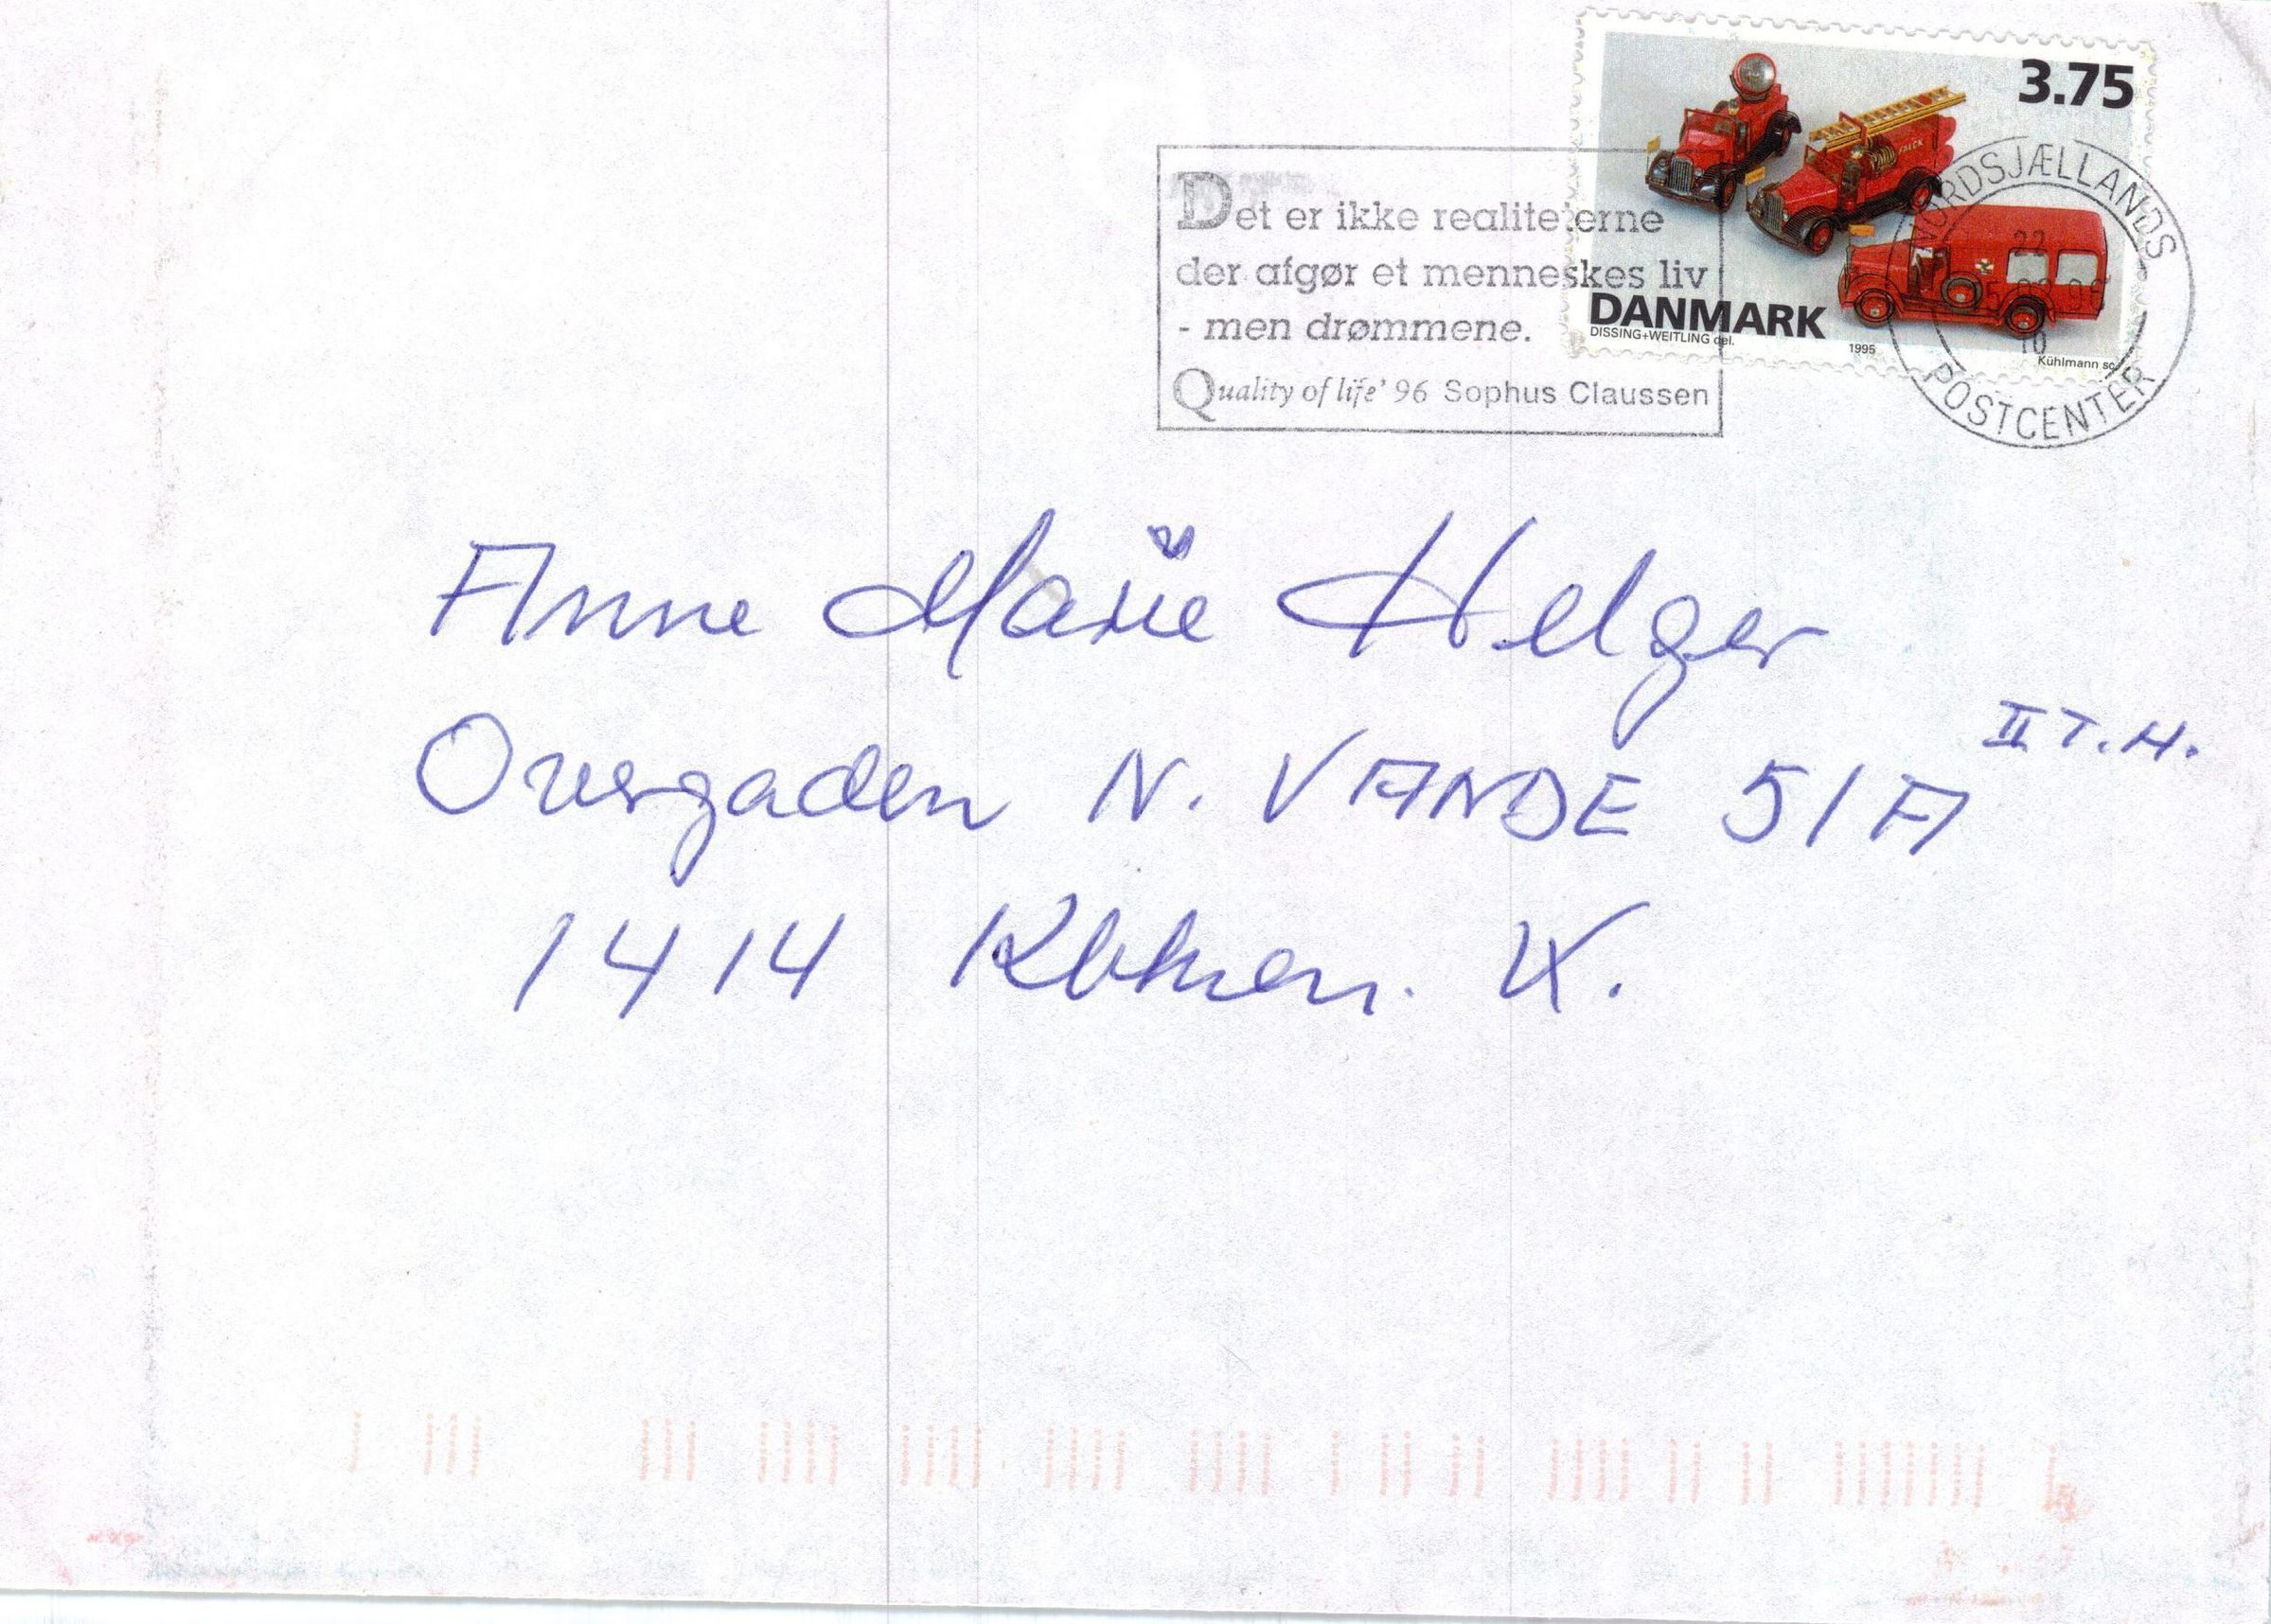 3.75
FALCK
DANMARK
DISSING+WEITLING del.
1995
Kühlmann sc.
NORDSJÆLLANDS
22
POSTCENTER
Det er ikke realiteterne
der afgør et menneskes liv
- men drømmene.
Quality of life' 96 Sophus Claussen
Anne Marie Helger
Overgaden N. VANDE 51A II T.H.
1414 Kbhvn. K.